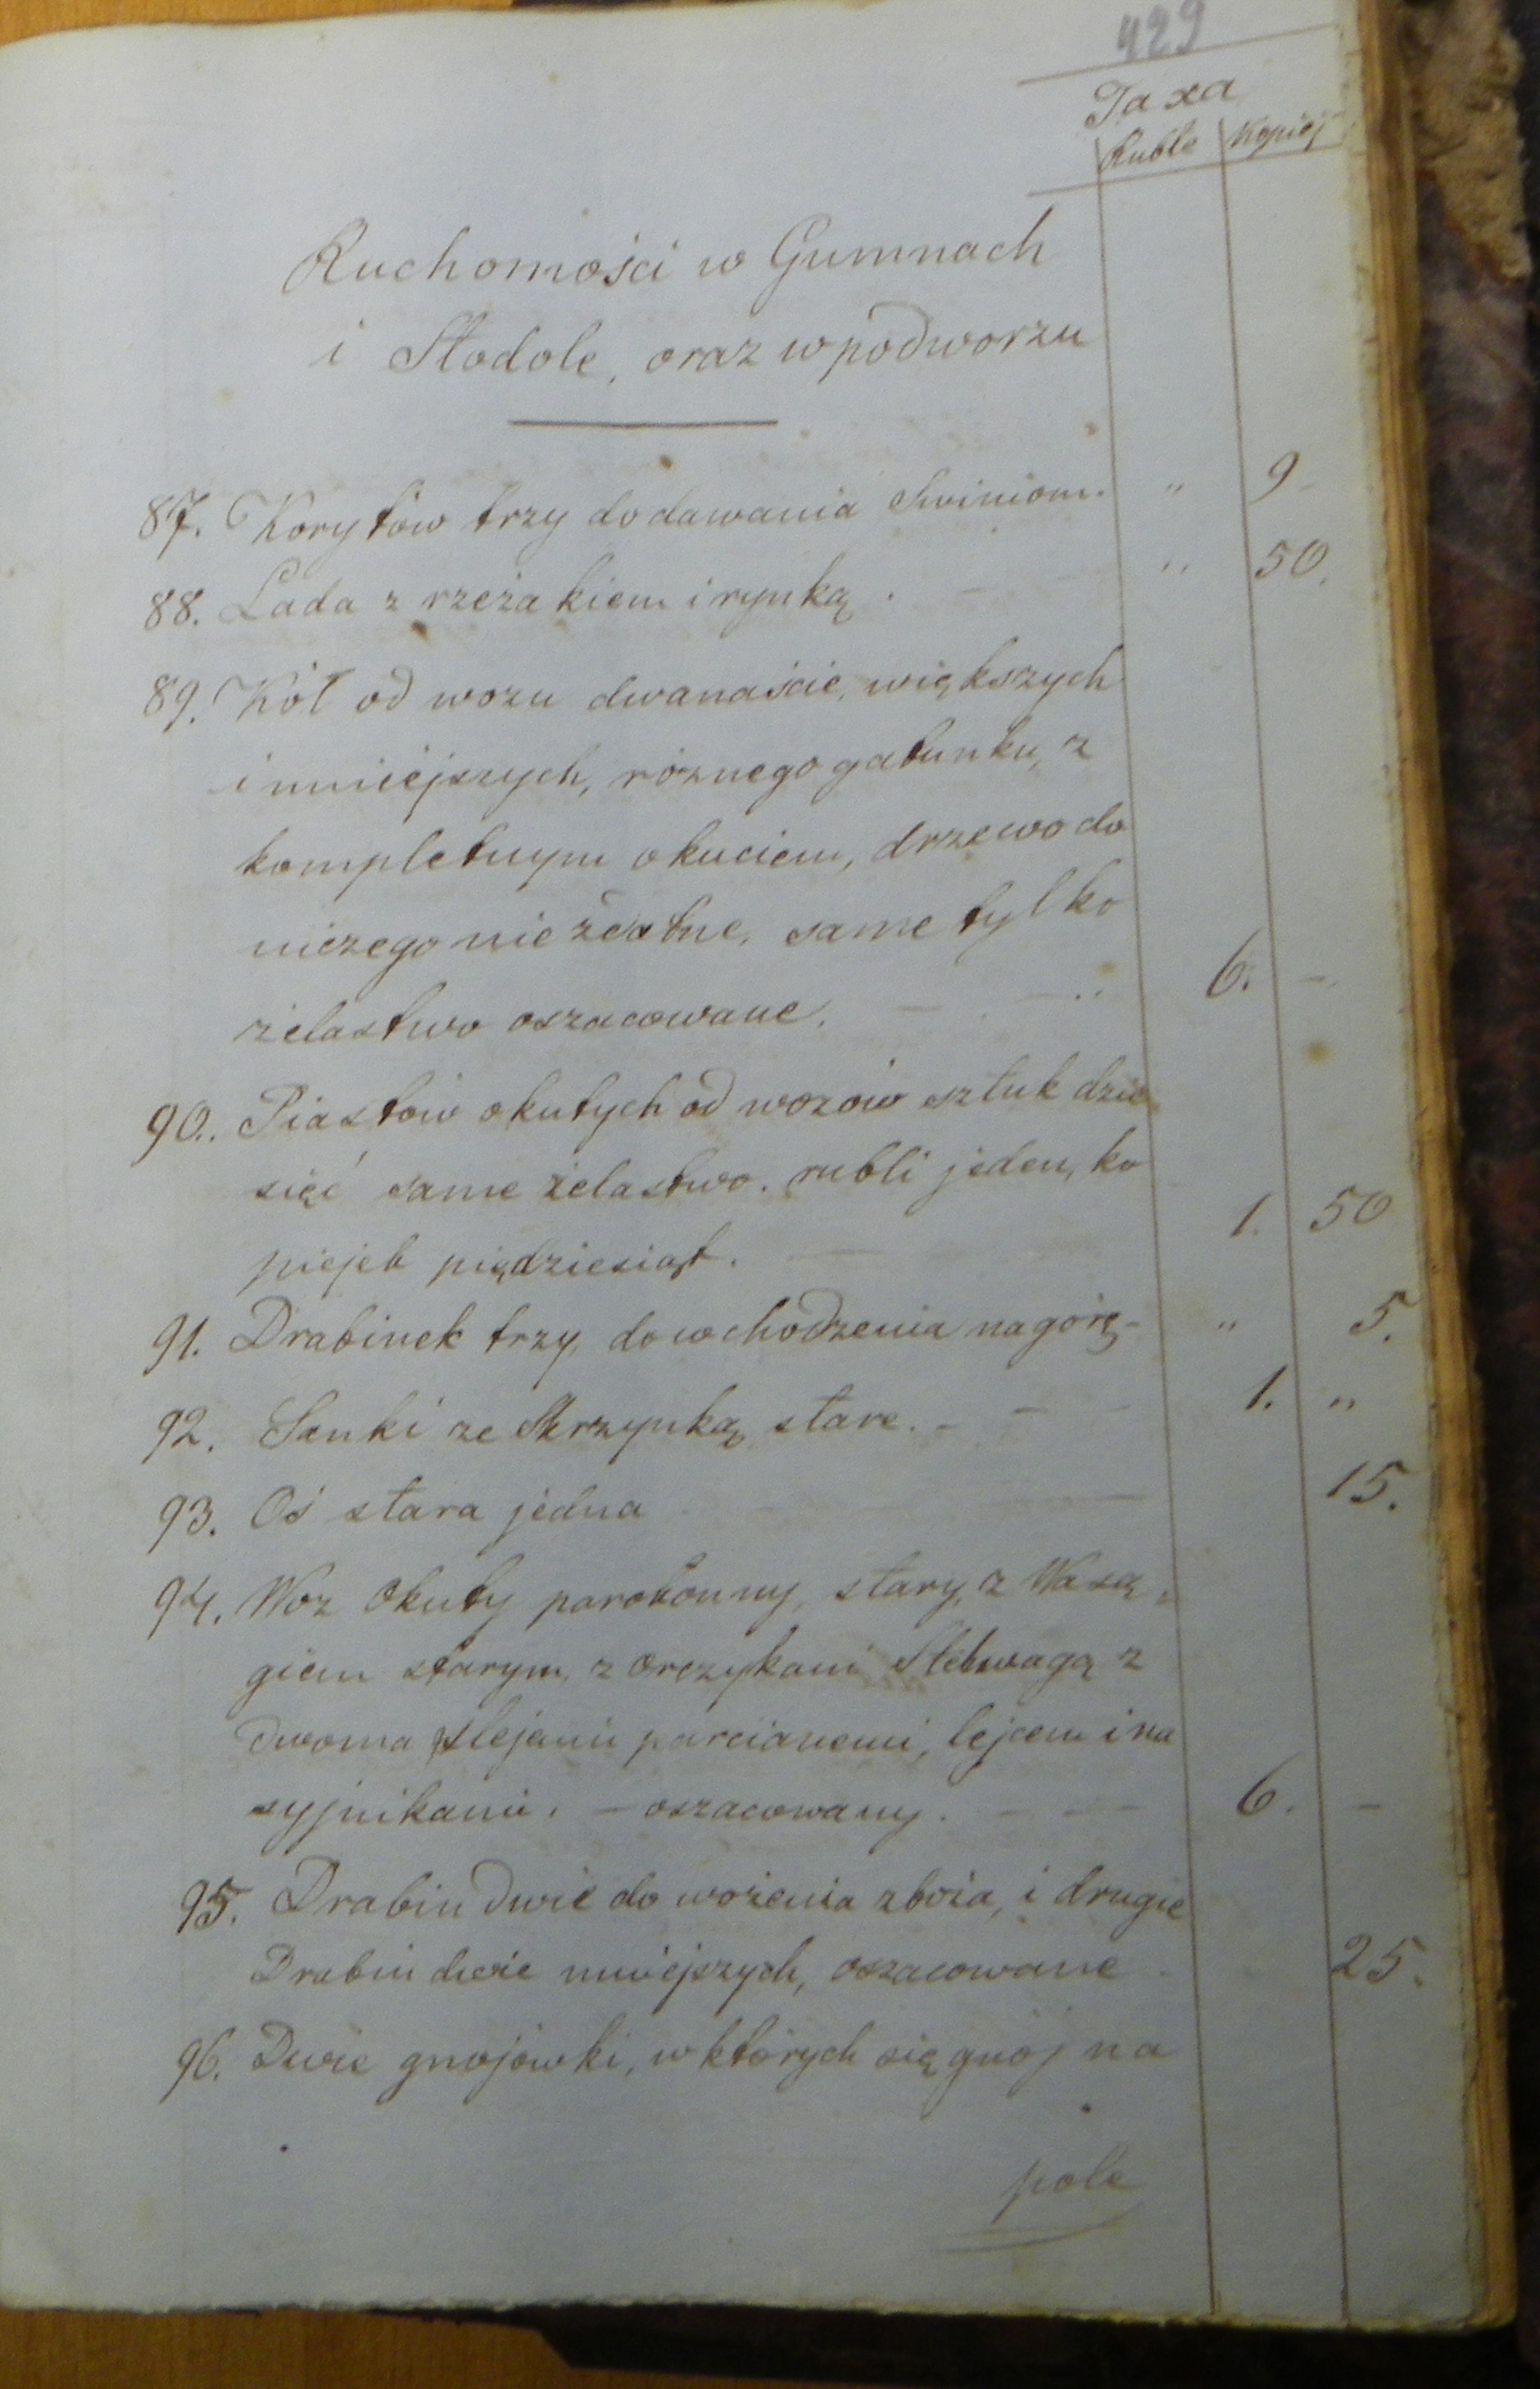 429
Taxa
Ruble Kopiej
Ruchomości w Gumnach
i Stodole, oraz w podworzu
87. Korytów trzy do dawania Swiniom. " 9
88. Lada z rzeżakiem i rynką. - " 50.
89. Kół od wozu dwanaście, większych
i mniejszych, rożnego gatunku, z
kompletnym okuciem, drzewo do
niczego nie zdatne, same tylko
żelastwo oszacowane. - 6. -
90. Piastów okutych od wozów sztuk dzie
sięć same żelastwo. rubli jeden, ko
piejek pięćdziesiąt. 1. 50
91. Drabinek trzy, do wchodzenia na górę - " 5.
92. Sanki ze Skrzynką stare. - - - 1. "
93. Oś stara jedna - 15.
94. Woz Okuty parokonny, stary, z Wasą
giem starym, z orczykami Stelwagą z
dwoma szlejami parcianemi, lejcem i na
syjnikami. - oszacowany. - - 6. -
95. Drabin dwie do wożenia zboża, i drugie
Drabin dwie mniejszych, oszacowane 25.
96. Dwie gnojówki, w których się gnój na
pole